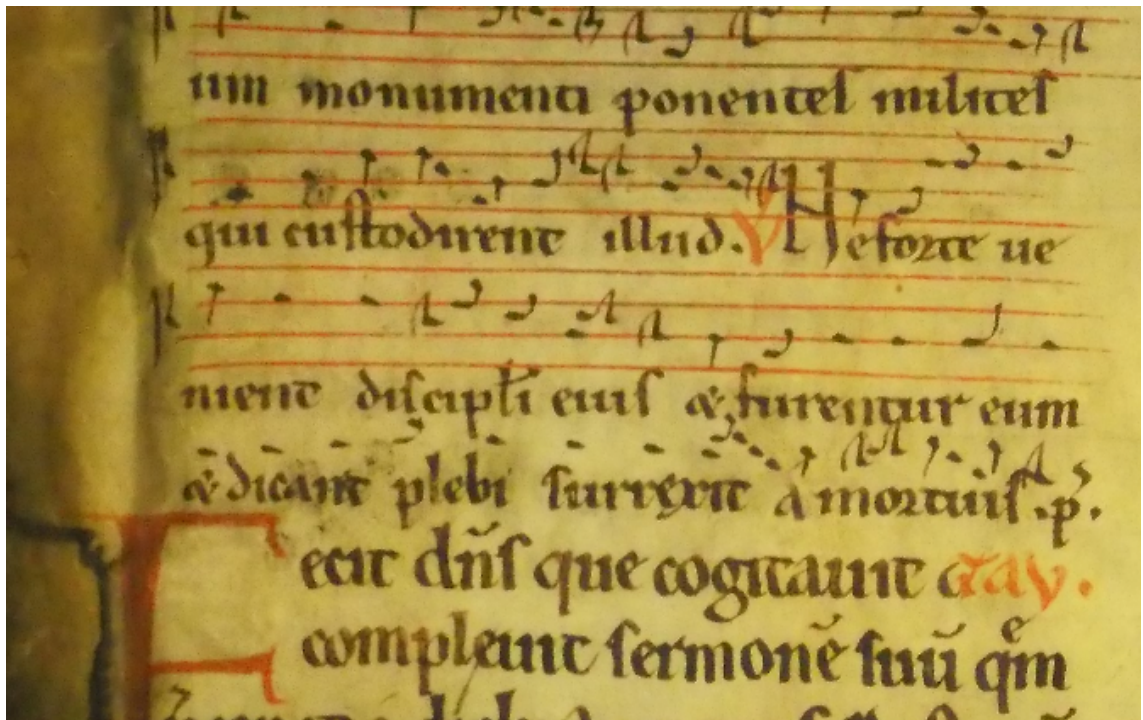 um monumenti ponentes milites
qui custodirent illud. V Ne forte ue
nient discipli eius & furentur eum
& dicant plebi surrexit a mortuis. p.
Fecit dn̄s que cogitauit &
compleuit sermonē suū qͤm